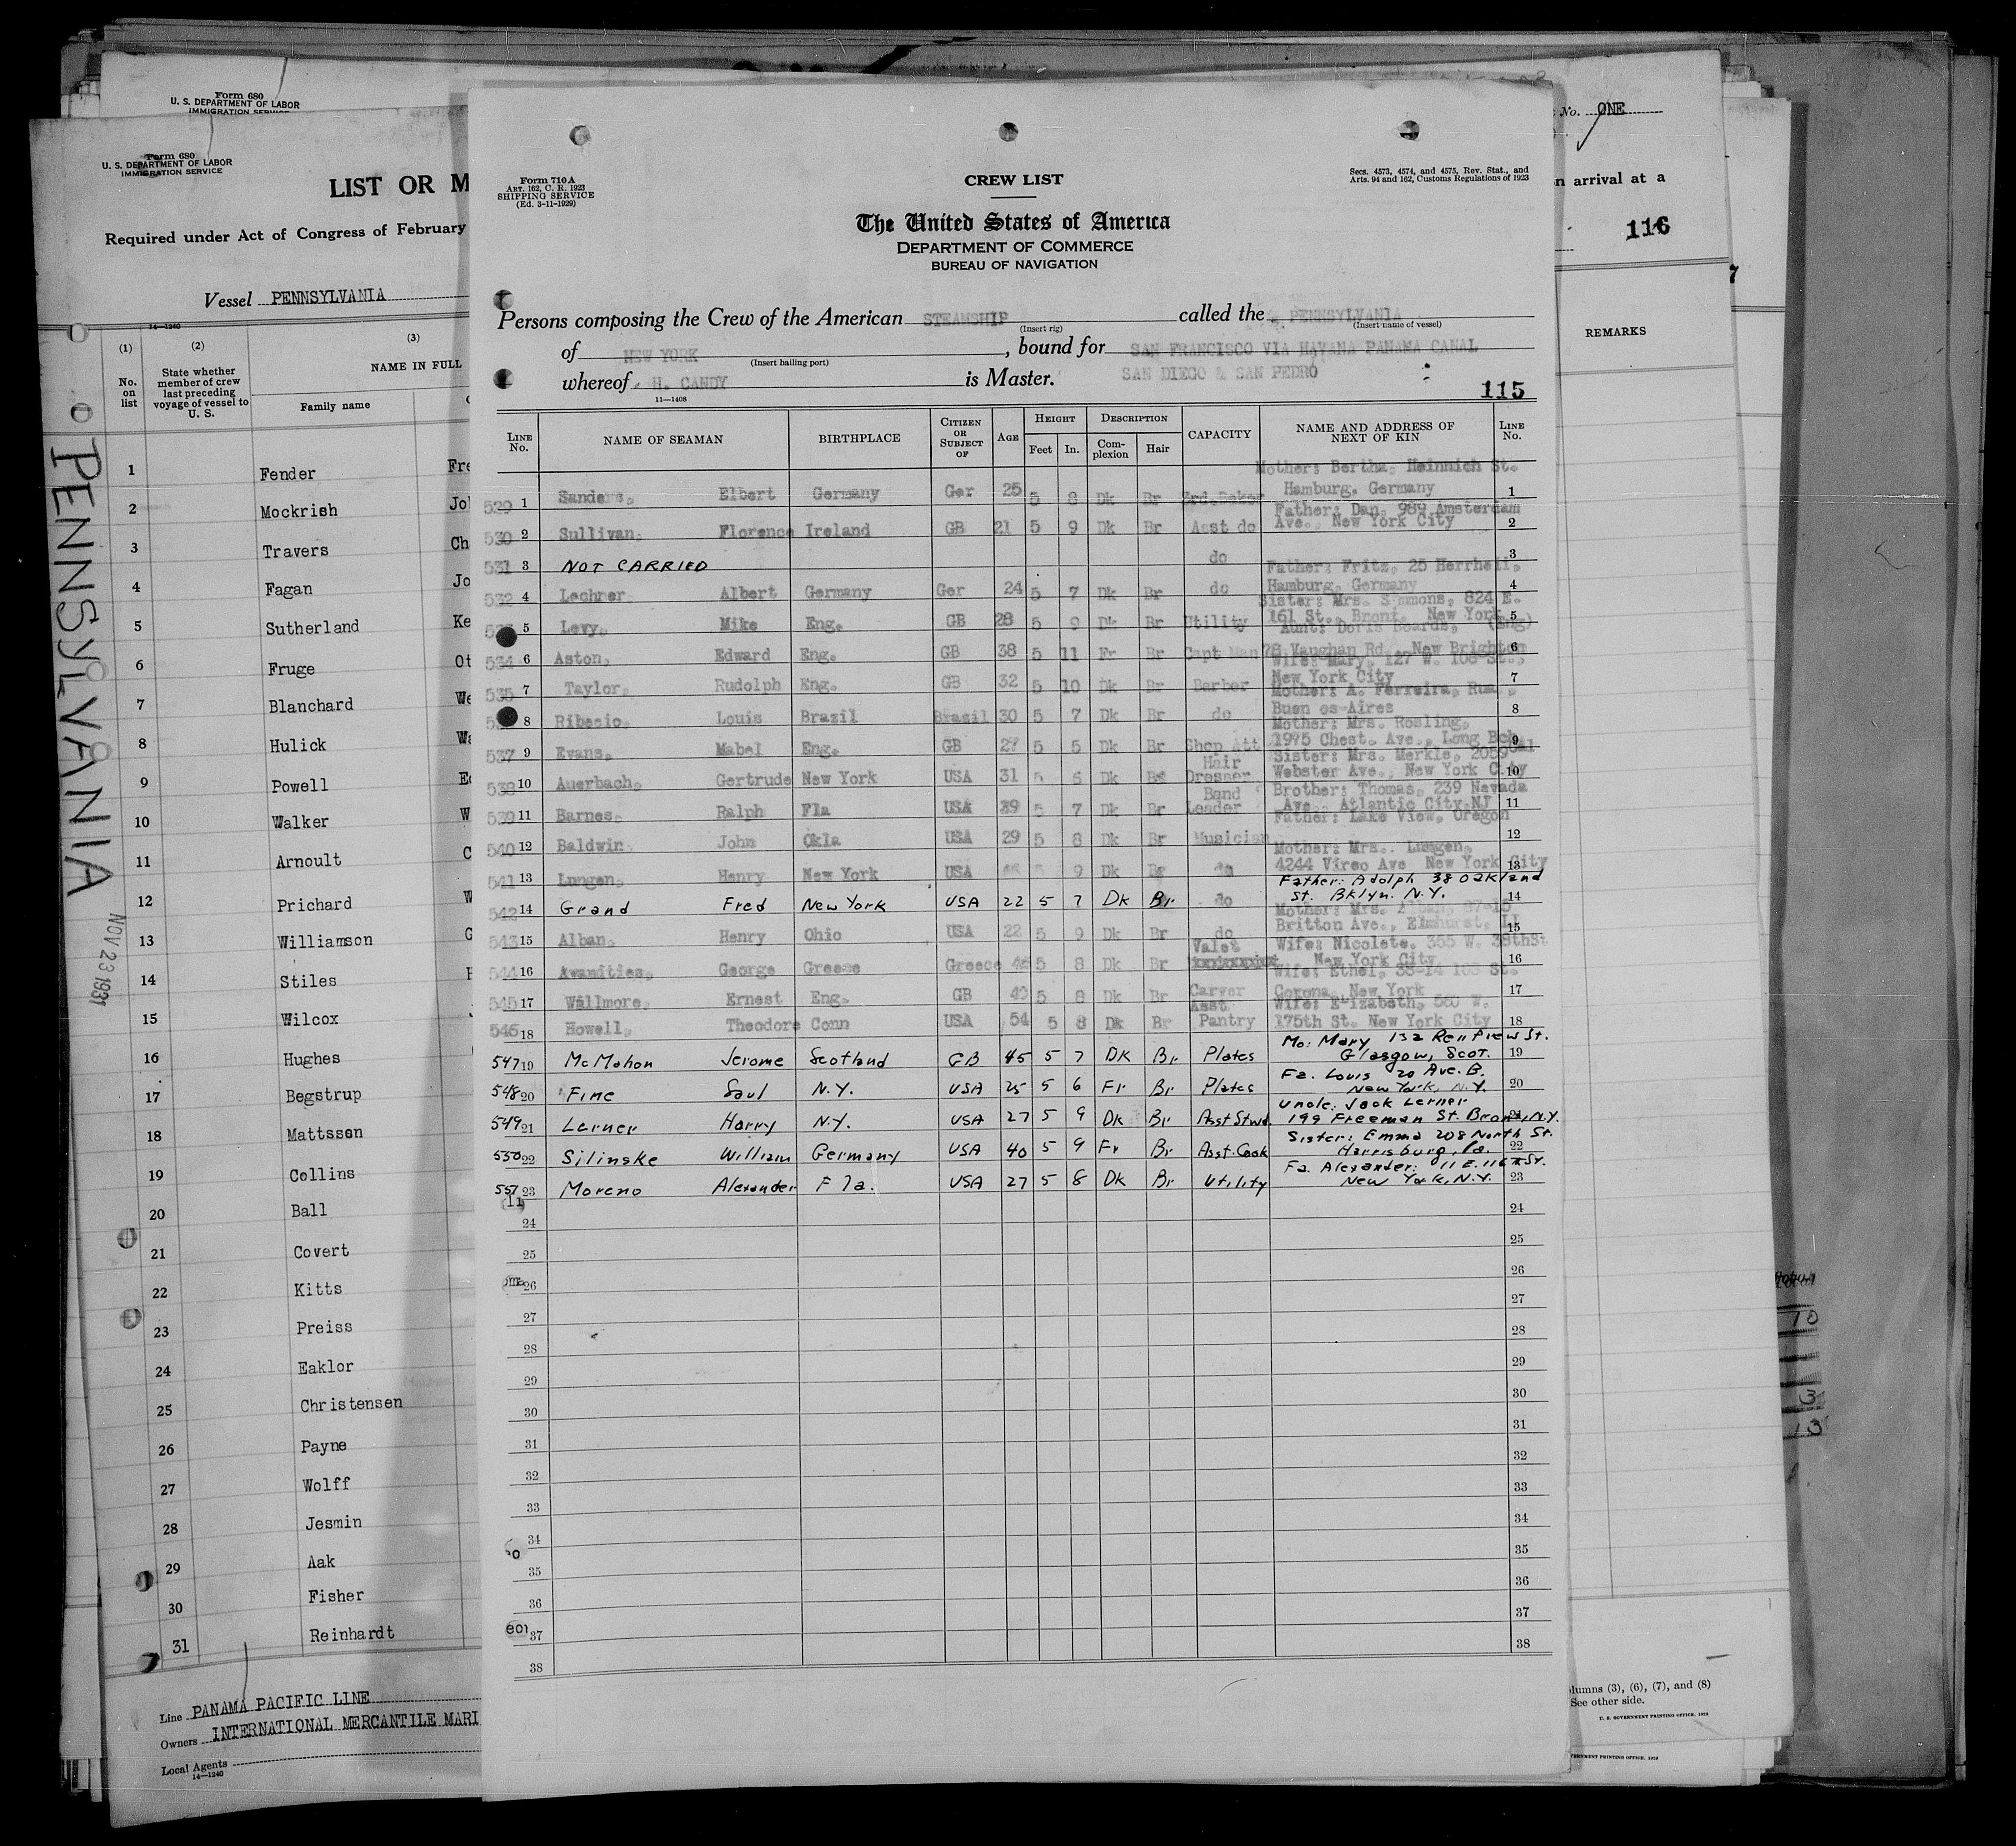 Form 680
U. S. DEPARTMENT OF LABOR
IMMIGRATION SERVICE
Form 680
U. S. DEPARTMENT OF LABOR
IMMIGRATION SERVICE
LIST OR M
Required under Act of Congress of February
Vessel PENNSYLVANIA
14—1240
(1) (2) (3)
No. on list
State whether member of crew last preceding voyage of vessel to U. S.
NAME IN FULL
Family name
1 Fender Fre
2 Mockrish Jo
3 Travers Ch
4 Fagan Jo
5 Sutherland Ke
6 Fruge Ot
7 Blanchard We
8 Hulick Wa
9 Powell Ed
10 Walker W
11 Arnoult C
12 Prichard W
13 Williamson G
14 Stiles
15 Wilcox
16 Hughes
17 Begstrup
18 Mattsson
19 Collins
20 Ball
21 Covert
22 Kitts
23 Preiss
24 Eaklor
25 Christensen
26 Payne
27 Wolff
28 Jesmin
29 Aak
30 Fisher
31 Reinhardt
Line PANAMA PACIFIC LINE
Owners INTERNATIONAL MERCANTILE MARI
Local Agents
14—1240
PENNSYLVANIA
NOV 23 1931
Form 710 A
ART. 162, C. R. 1923
SHIPPING SERVICE
(Ed. 3-11-1929)
CREW LIST
Secs. 4573, 4574, and 4575, Rev. Stat., and
Arts. 94 and 162, Customs Regulations of 1923
The United States of America
DEPARTMENT OF COMMERCE
BUREAU OF NAVIGATION
Persons composing the Crew of the American STEAMSHIP called the PENNSYLVANIA
(Insert rig) (Insert name of vessel)
of NEW YORK, bound for SAN FRANCISCO VIA HAVANA PANAMA CANAL
(Insert hailing port)
whereof H. CANDY is Master. SAN DIEGO & SAN PEDRO
11—1408
115
LINE No. NAME OF SEAMAN BIRTHPLACE CITIZEN OR SUBJECT OF AGE HEIGHT Feet In. DESCRIPTION Complexion Hair CAPACITY NAME AND ADDRESS OF NEXT OF KIN LINE No.
Mother: Bertha, Heinnich St.
529 1 Sanders, Elbert Germany Ger 25 5 8 Dk Br 3rd.Baker Hamburg, Germany 1
Father: Dan, 989 Amsterdam
530 2 Sullivan, Florence Ireland GB 21 5 9 Dk Br Asst do Ave., New York City 2
531 3 NOT CARRIED do 3
Father: Fritz, 25
532 4 Lechner Albert Germany Ger 24 5 7 Dk Br do Hamburg, Germany 4
Sister: Mrs. Simmons, 824 E.
5 Levy, Mike Eng. GB 28 5 9 Dk Br Utility 161 St., Bronx, New York 5
Aunt: Doris (Eng)
534 6 Aston, Edward Eng. GB 38 5 11 Fr Br Capt Man 78 Vaughan Rd., New Brighton 6
Wife: Mary, 127 W. 108 St.,
535 7 Taylor, Rudolph Eng. GB 32 5 10 Dk Br Barber New York City 7
Mother: A. Ferreira, Rua.,
8 Ribecio, Louis Brazil Brazil 30 5 7 Dk Br do Buen os-Aires 8
Mother: Mrs. Rosling,
537 9 Evans, Mabel Eng. GB 27 5 5 Dk Br Shop Att 1975 Chest. Ave., Long Bch 9
Hair Sister: Mrs. Merkle, 2059
538 10 Auerbach, Gertrude New York USA 31 5 6 Dk Br Dresser Webster Ave., New York City 10
Band Brother: Thomas, 239 Nevada
539 11 Barnes, Ralph Fla USA 29 5 7 Dk Br Leader Ave., Atlantic City, NJ 11
Father: Lake View, Oregon
540 12 Baldwin John Okla USA 29 5 8 Dk Br Musician 12
Mother: Mrs. Lungen,
541 13 Lungen, Henry New York USA 9 Dk Br do 4244 Vireo Ave New York City 13
Father: Adolph 38 Oakland
542 14 Grand Fred New York USA 22 5 7 Dk Br. do St. Bklyn. N.Y. 14
Mother: Mrs. Alban, 87-15
543 15 Alban, Henry Ohio USA 22 5 9 Dk Br do Britton Ave., Elmhurst, LI 15
Valet Wife: Nicolete, 355 W. 39thSt
544 16 Avanities, George Greece Greece 46 5 8 Dk Br xxxxxxxxxx New York City 16
Wife: Ethel, 38-14 108 St.
545 17 Willmore, Ernest Eng. GB 49 5 8 Dk Br Carver Corona, New York 17
Asst Wife: Elizabeth, 560 W.
546 18 Howell, Theodore Conn USA 54 5 8 Dk Br Pantry 175th St. New York City 18
Mo: Mary 132 Renfrew St.
547 19 McMahon Jerome Scotland GB 45 5 7 DK Br. Plates Glasgow, Scot. 19
Fa. Louis 20 Ave. B.
548 20 Fine Saul N.Y. USA 25 5 6 Fr Br Plates New York, N.Y. 20
Uncle: Jack Lerner
549 21 Lerner Harry N.Y. USA 27 5 9 DK Br Asst Stwd. 199 Freeman St. Bronx, N.Y. 21
Sister: Emma 208 North St.
550 22 Silinske William Germany USA 40 5 9 Fr Br Asst. Cook Harrisburg, Pa. 22
Fa. Alexander: 11 E. 116th St.
551 23 Moreno Alexander Fla. USA 27 5 8 DK Br Utility New York, N.Y. 23
24 24
25 25
26 26
27 27
28 28
29 29
30 30
31 31
32 32
33 33
34 34
35 35
36 36
37 37
38 38
No. ONE
n arrival at a
116
7
REMARKS
10
3
13
olumns (3), (6), (7), and (8)
See other side.
U. S. GOVERNMENT PRINTING OFFICE, 1929
VERNMENT PRINTING OFFICE, 1929